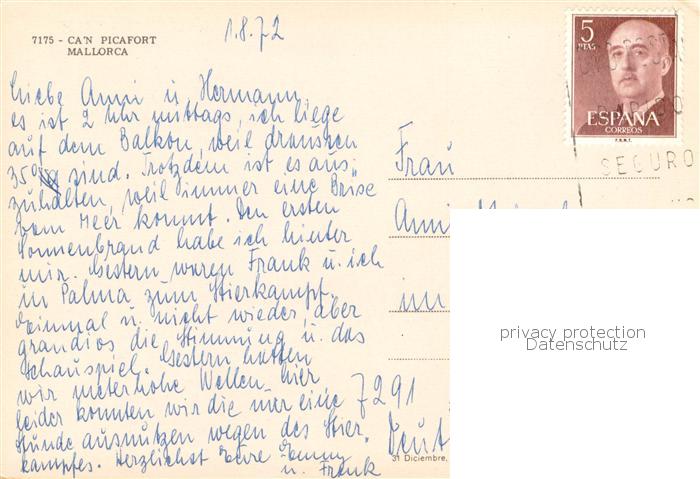 7175 - CA'N PICAFORT
MALLORCA
1.8.72
Liebe Anni u Hermann
es ist 2 Uhr mittags, ich liege
auf dem Balkon, weil draussen
35° sind. Trotzdem ist es aus-
zuhalten, weil immer eine Brise
vom Meer kommt. Den ersten
Sonnenbrand habe ich hinter
mir. Gestern waren Frank u. ich
in Palma zum Stierkampf.
Einmal u. nicht wieder, aber
grandios die Stimmung u. das
Schauspiel. Gestern hatten
wir meterhohe Wellen hier
leider konnten wir die nur eine
Stunde ausnutzen wegen des Stier-
kampfes. Herzlichst Eure
u. Frank
5
PTAS
ESPAÑA
CORREOS
F.N.M.T.
SEGURO
Frau
Anni
in
7291
Deut
31 Diciembre,
privacy protection
Datenschutz